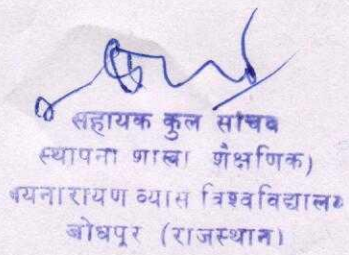 सहायक कुल सचिव
स्थापना शाखा शैक्षणिक)
जयनारायण व्यास विश्वविद्यालय
जोधपुर (राजस्थान)